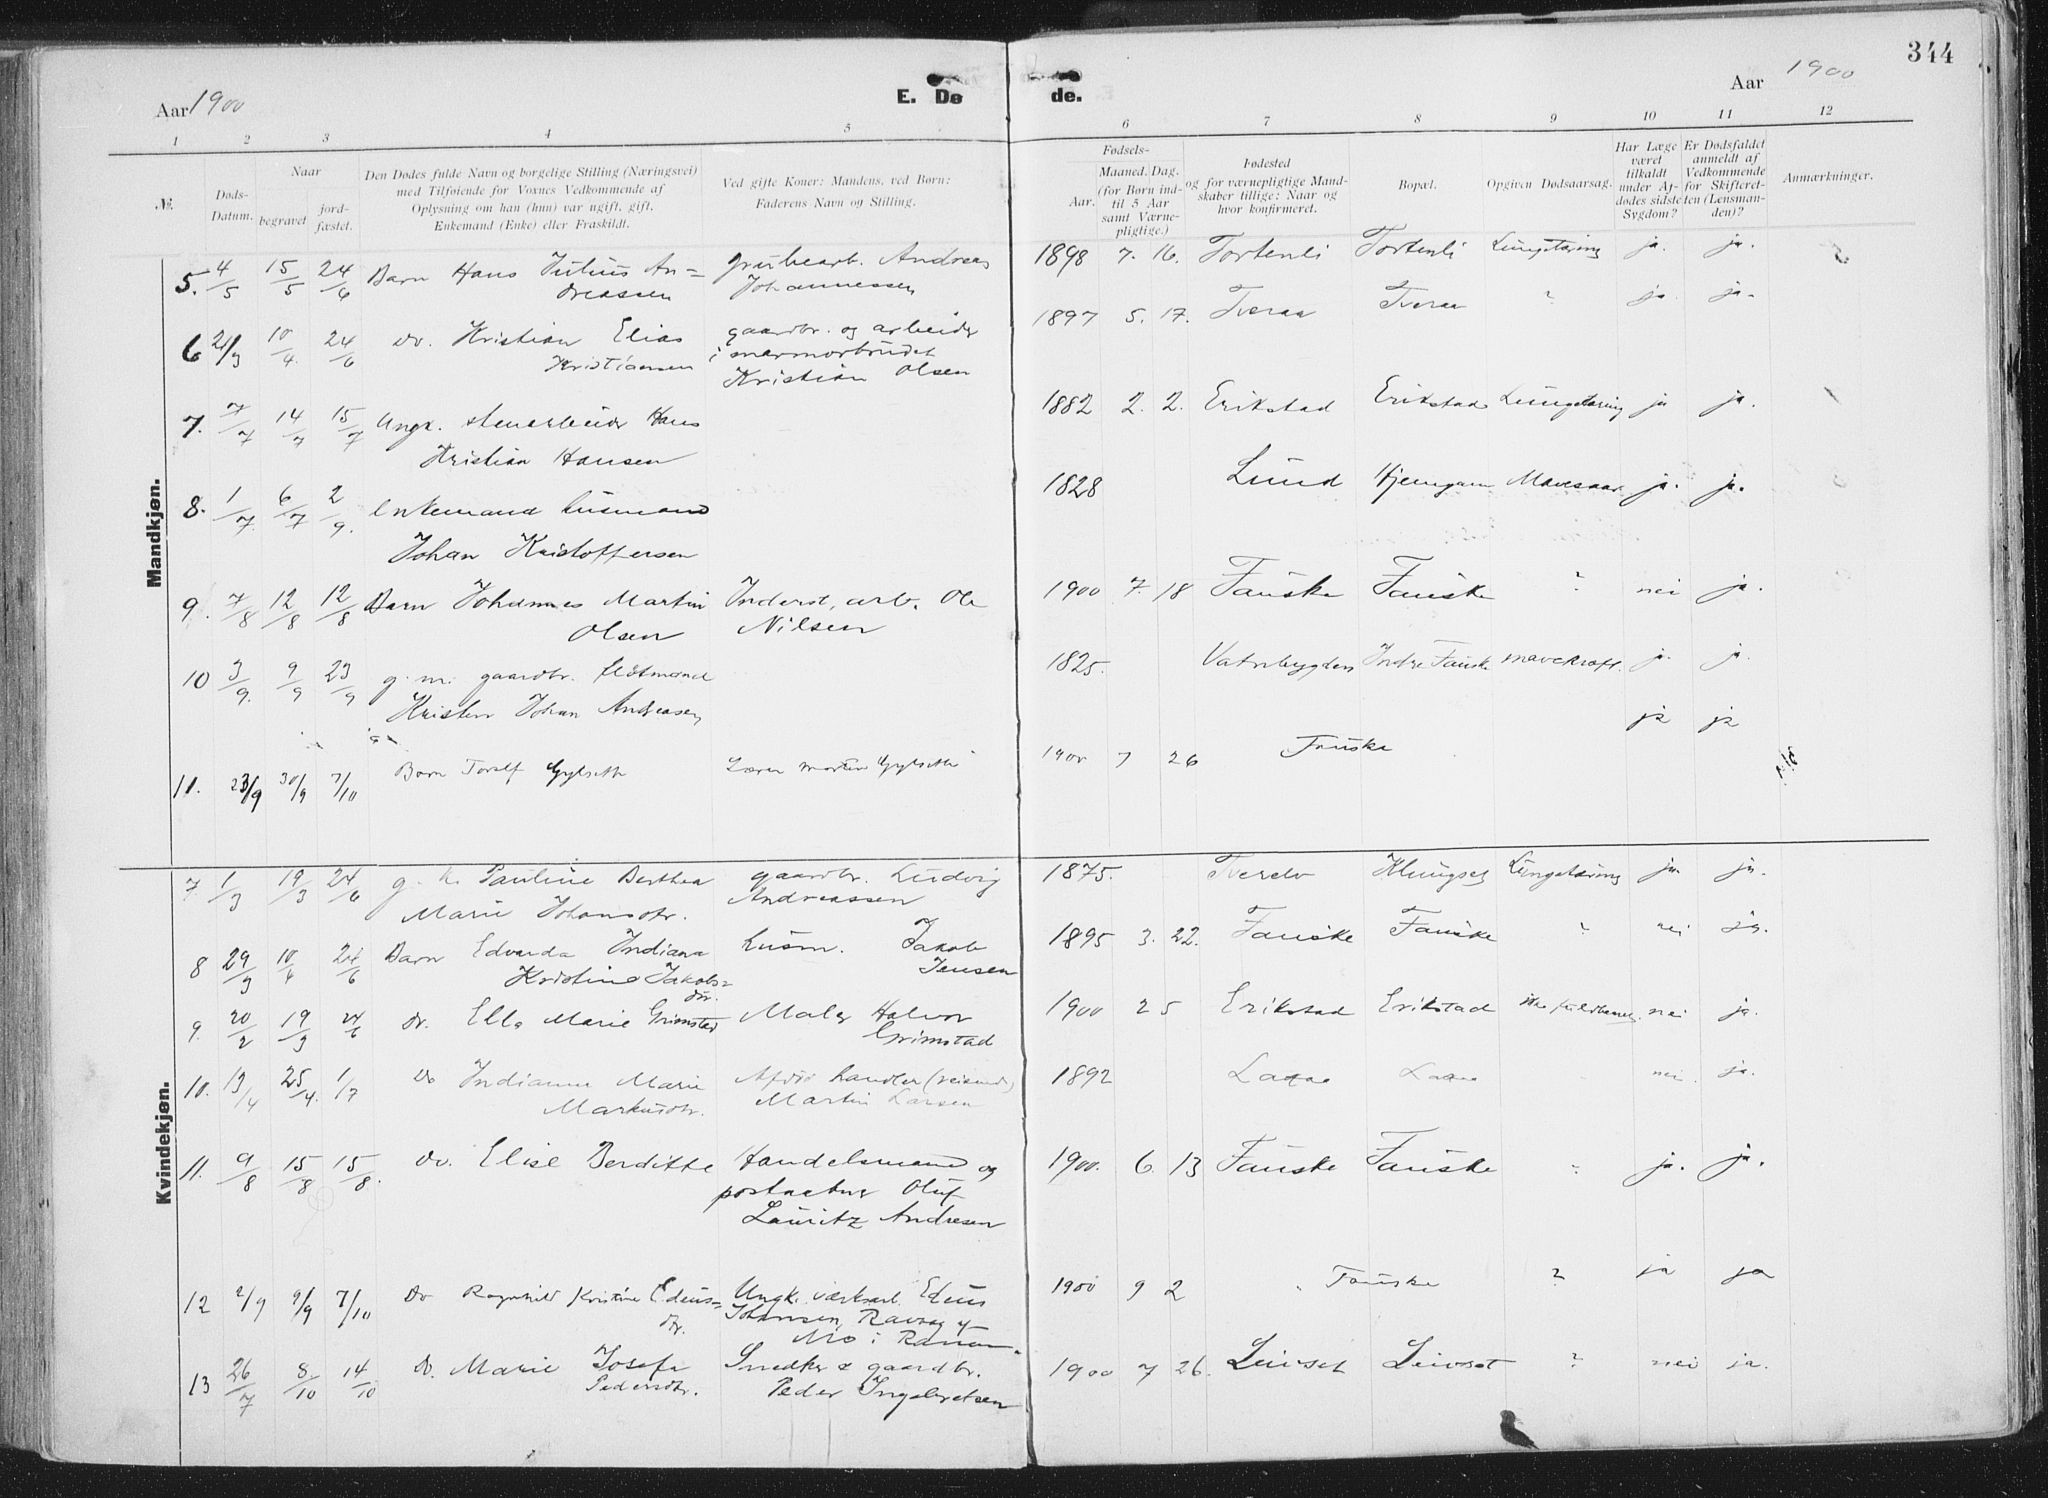 344
Aar 1900
E. Dø de.
Aar 1900
1 2 3 4 5 6 7 8 9 10 11 12
No.
Naar
Døds-
Datum.
begravet
jord-
fæstet.
Den Dødes fulde Navn og borgelige Stilling (Næringsvei)
med Tilføiende for Voxnes Vedkommende af
Oplysning om han (hun) var ugift, gift,
Enkemand (Enke) eller Fraskildt.
Ved gifte Koner: Mandens, ved Børn:
Faderens Navn og Stilling.
Fødsels-
Aar.
Maaned. Dag.
(for Børn ind-
til 5 Aar
samt Værne-
pligtige.)
Fødested
og for værnepligtige Mand-
skaber tillige: Naar og
hvor konfirmeret.
Bopæl.
Opgiven Dødsaarsag.
Har Læge
været
tilkaldt
under Af-
dødes sidste
Sygdom?
Er Dødsfaldet
anmeldt af
Vedkommende
for Skifteret-
ten (Lensman-
den)?
Anmærkninger.
Mandkjøn.
5. 4/5 15/5 24/6 Barn Hans Julius An= grubearb. Andreas 1898 7. 16. Tortenli Tortenli Lungetæring ja. ja.
dreassen Johannessen
6 21/3 10/4. 24/6 Do. Kristian Elias gaardbr. og arbeider 1897 5. 17. Tveraa Tveraa ? ja. ja.
Kristiansen i marmorbrudet
Kristian Olsen
7. 7/7 14/7 15/7 Ungk. stenarbeider Hans 1882 2. 2. Erikstad Erikstad Lungetæring ja ja.
Kristian Hansen
8. 1/7. 6/7 2/9. Enkemand husmand 1828 Lund Hjemgam Mavesaar ja. ja.
Johan Kristoffersen
9. 7/8 12/8 12/8 Barn Johannes Martin Inderst, arb. Ole 1900 7. 18 Fauske Fauske ? nei ja.
Olsen Nilsen
10 3/9. 9/9 23/9 g. m. gaardbr. 1825. Vatnbygden Indre Fauske mavekræft. ja. ja.
Kristen Johan Andreasen ja ja
11. 23/9 30/9 7/10 Barn Toralf Gylseth Lærer Morten Gylseth 1900 7 26 Fauske
Kvindekjøn.
7 1/3 19/3 24/6 g. k. Pauline Berthea gaardbr. Ludvig 1875. Tverelv Klungset Lungetæring ja. ja.
Marie Johansdtr. Andreassen
8 29/3 10/4 24/6 Barn Edvarda Indiana husm. Jakob 1895 3. 22. Fauske Fauske ? nei ja.
Kristine Jakobs= Jensen
dtr.
9. 20/2 19/3 24/6 do. Ella Marie Grimstad Maler Halvor 1900 2 5 Erikstad Erikstad ikke fuldbaaret nei ja.
Grimstad
10. 13/4 25/4. 1/7 Do Indianna Marie Afdøde handler (reisende) 1892 nei. ja.
Markusdtr. Martin Larsen
11. 9/8 15/8 15/8. Do. Elise Berditte Handelsmand og 1900. 6. 13 Fauske Fauske ? ja. ja.
postaabner Oluf
Lauritz Andresen
12 2/9 9/9 7/10 Do Ragnhild Kristine Edeus= Ungk. værksarb. Edeus 1900 9 2 Fauske ? ja ja
dtr. Johansen,
Mo i Ranen.
13 26/7 8/10 14/10 Do. Marie Josefa Snedker & gaardbr. 1900 7 26. Leivset Leivset ? nei ja.
Pedersdtr. Peder Ingebretsen